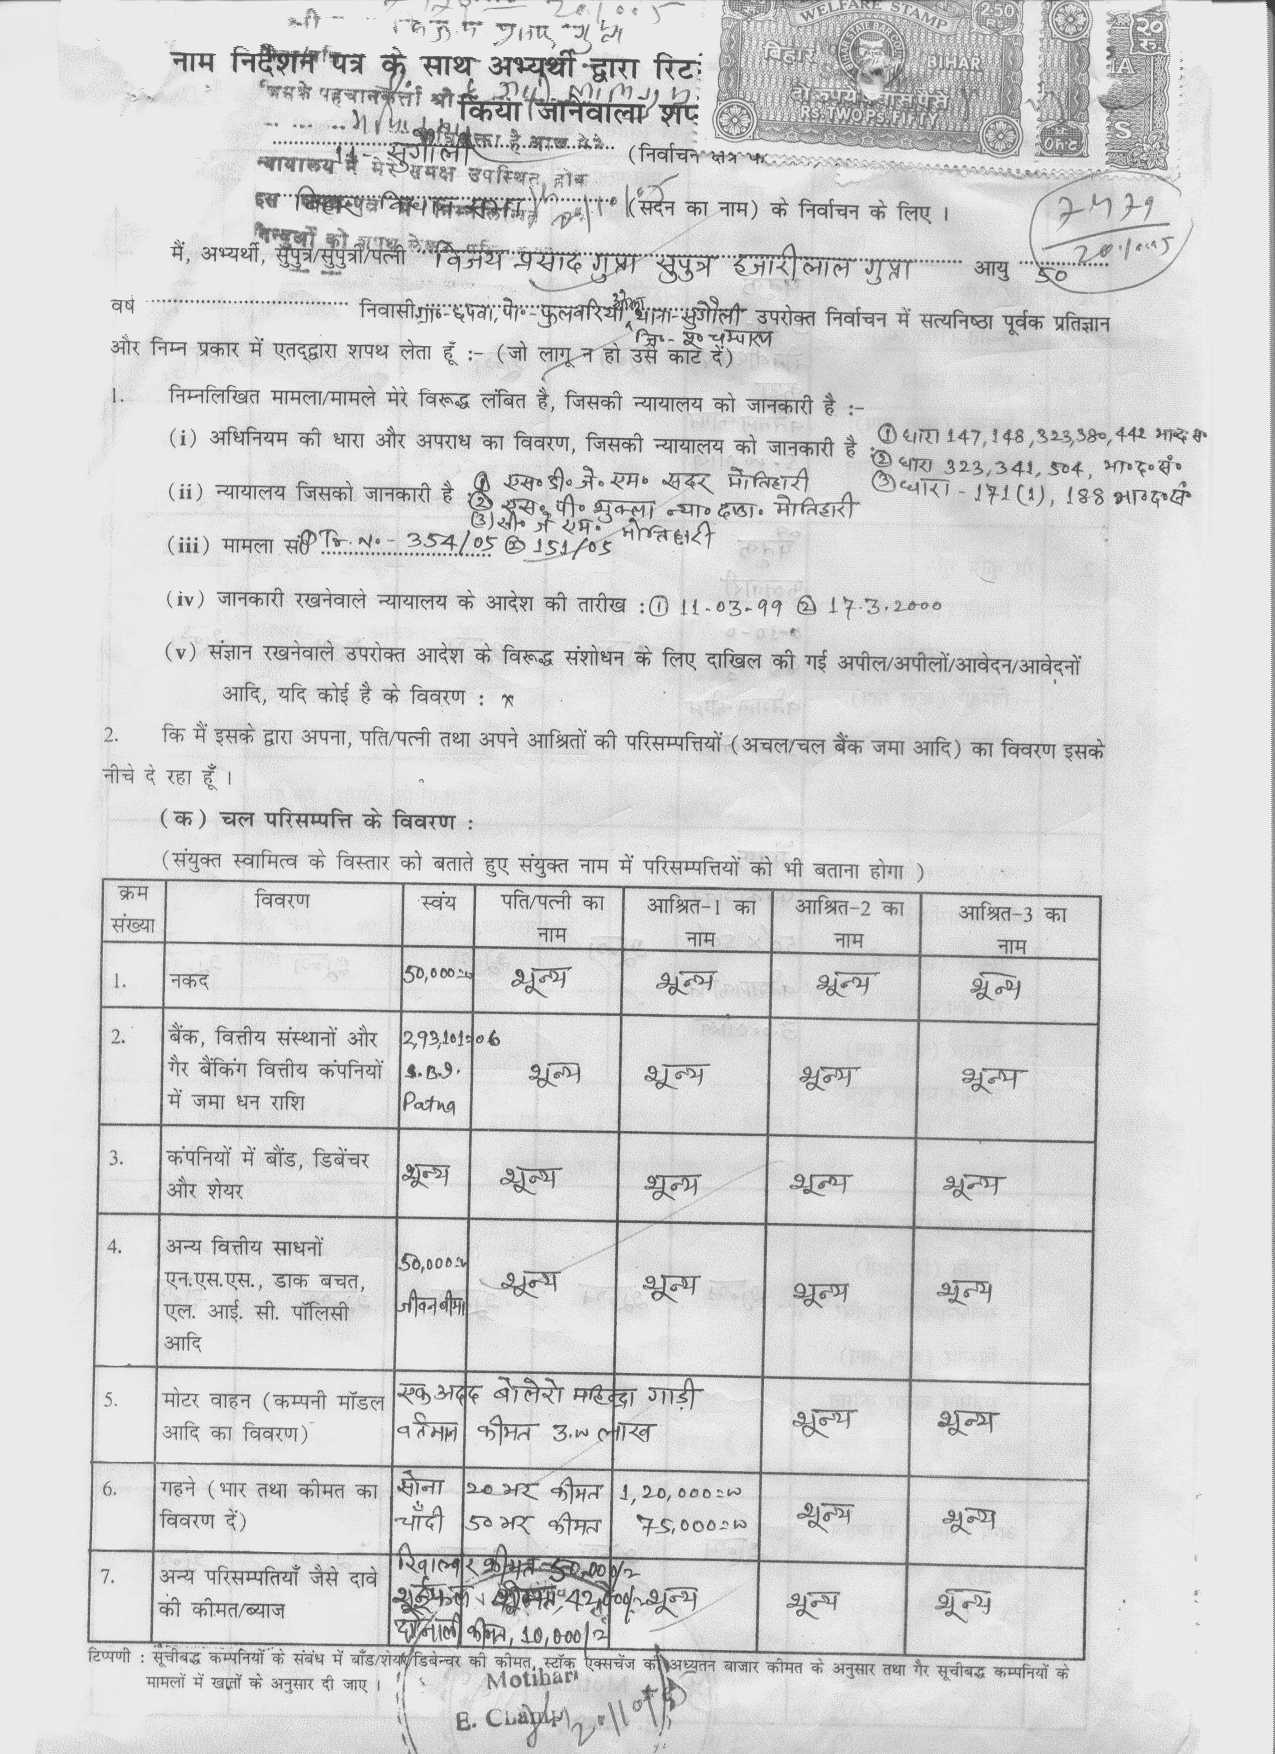 WELFARE STAMP
2.50
२० रू
बिहार BIHAR
दो रूपये पचास पैसे
RS.TWO PS.FIFTY
नाम निर्देशन पत्र के साथ अभ्यर्थी द्वारा रिट
किया जानेवाला शप
11- सुगौली (निर्वाचन क्षेत्र
न्यायालय में मेरे समक्ष उपस्थित होव
(सदन का नाम) के निर्वाचन के लिए ।
मैं, अभ्यर्थी, सुपुत्र/सुपुत्री/पत्नी विजय प्रसाद गुप्ता सुपुत्र हजारीलाल गुप्ता आयु 50
वर्ष निवासी ग्रा०- छपवा, पो०- फुलवरिया थाना- सुगौली उपरोक्त निर्वाचन में सत्यनिष्ठा पूर्वक प्रतिज्ञान
जि०- पू० चम्पारण
और निम्न प्रकार में एतद्द्वारा शपथ लेता हूँ :- (जो लागू न हो उसे काट दें)
1. निम्नलिखित मामला/मामले मेरे विरूद्ध लंबित है, जिसकी न्यायालय को जानकारी है :-
(i) अधिनियम की धारा और अपराध का विवरण, जिसकी न्यायालय को जानकारी है : ① धारा 147, 148, 323, 380, 442 भा०द०सं०
② धारा 323, 341, 504, भा०द०सं०
③ धारा - 171(1), 188 भा०द०सं०
(ii) न्यायालय जिसको जानकारी है : ① एस० डी० जे० एम० सदर मोतिहारी
② एस० पी० शुक्ला न्या० दण्डा० मोतिहारी
③ सी० जे० एम० मोतिहारी
(iii) मामला सं० ① Tr. No- 354/05 ② 151/05
(iv) जानकारी रखनेवाले न्यायालय के आदेश की तारीख : ① 11-03-99 ② 17.3.2000
(v) संज्ञान रखनेवाले उपरोक्त आदेश के विरूद्ध संशोधन के लिए दाखिल की गई अपील/अपीलों/आवेदन/आवेदनों
आदि, यदि कोई है के विवरण : x
2. कि मैं इसके द्वारा अपना, पति/पत्नी तथा अपने आश्रितों की परिसम्पत्तियों (अचल/चल बैंक जमा आदि) का विवरण इसके
नीचे दे रहा हूँ ।
(क) चल परिसम्पत्ति के विवरण :
(संयुक्त स्वामित्व के विस्तार को बताते हुए संयुक्त नाम में परिसम्पत्तियों को भी बताना होगा )
क्रम संख्या विवरण स्वंय पति/पत्नी का नाम आश्रित-1 का नाम आश्रित-2 का नाम आश्रित-3 का नाम
1. नकद 50,000=00 शून्य शून्य शून्य शून्य
2. बैंक, वित्तीय संस्थानों और 2,93,101=06
गैर बैंकिंग वित्तीय कंपनियों S.B.I. शून्य शून्य शून्य शून्य
में जमा धन राशि Patna
3. कंपनियों में बौंड, डिबेंचर शून्य शून्य शून्य शून्य शून्य
और शेयर
4. अन्य वित्तीय साधनों 50,000=00
एन.एस.एस., डाक बचत, जीवन बीमा शून्य शून्य शून्य शून्य
एल. आई. सी. पॉलिसी
आदि
5. मोटर वाहन (कम्पनी मॉडल एक अदद बोलेरो महिन्द्रा गाड़ी शून्य शून्य
आदि का विवरण) वर्तमान कीमत 3.00 लाख
6. गहने (भार तथा कीमत का सोना 20 भर कीमत 1,20,000=00 शून्य शून्य
विवरण दें) चाँदी 50 भर कीमत 75,000=00
7. अन्य परिसम्पतियाँ जैसे दावे रिवाल्वर कीमत-50,000/=
की कीमत/ब्याज शून्य शून्य शून्य
दोनाली कीमत, 10,000/=
टिप्पणी : सूचीबद्ध कम्पनियों के संबंध में बाँड/शेयर/डिबेन्चर की कीमत, स्टॉक एक्सचेंज की अध्यतन बाजार कीमत के अनुसार तथा गैर सूचीबद्ध कम्पनियों के
मामलों में खातों के अनुसार दी जाए ।
Motihari